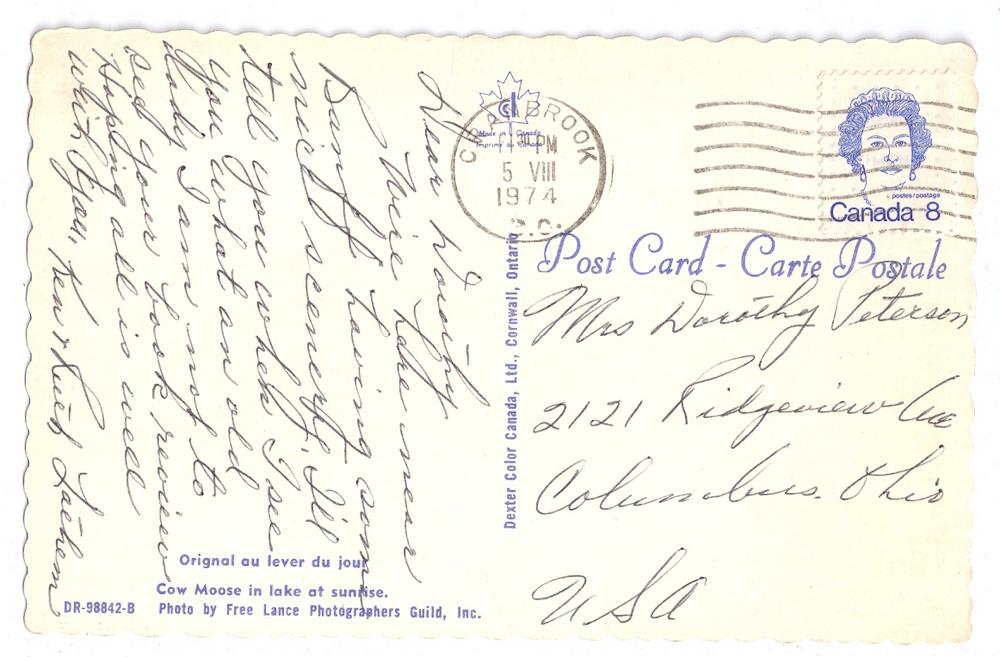 Dear Dorothy
near
Banff having some
nice scenery. I'll
tell you when I see
you what an old
lady I am not to
sed your book review
Hopping all is well
with you, Ken &
Made in Canada
Imprimé au Canada
CRANBROOK
PM
5 VIII
1974
B.C.
postes/postage
Canada 8
Post Card - Carte Postale
Mrs Dorothy Peterson
2121 Ridgeview Ave
Columbus. Ohio
USA
Dexter Color Canada, Ltd., Cornwall, Ontario
Orignal au lever du jour
Cow Moose in lake at sunrise.
DR-98842-B Photo by Free Lance Photographers Guild, Inc.